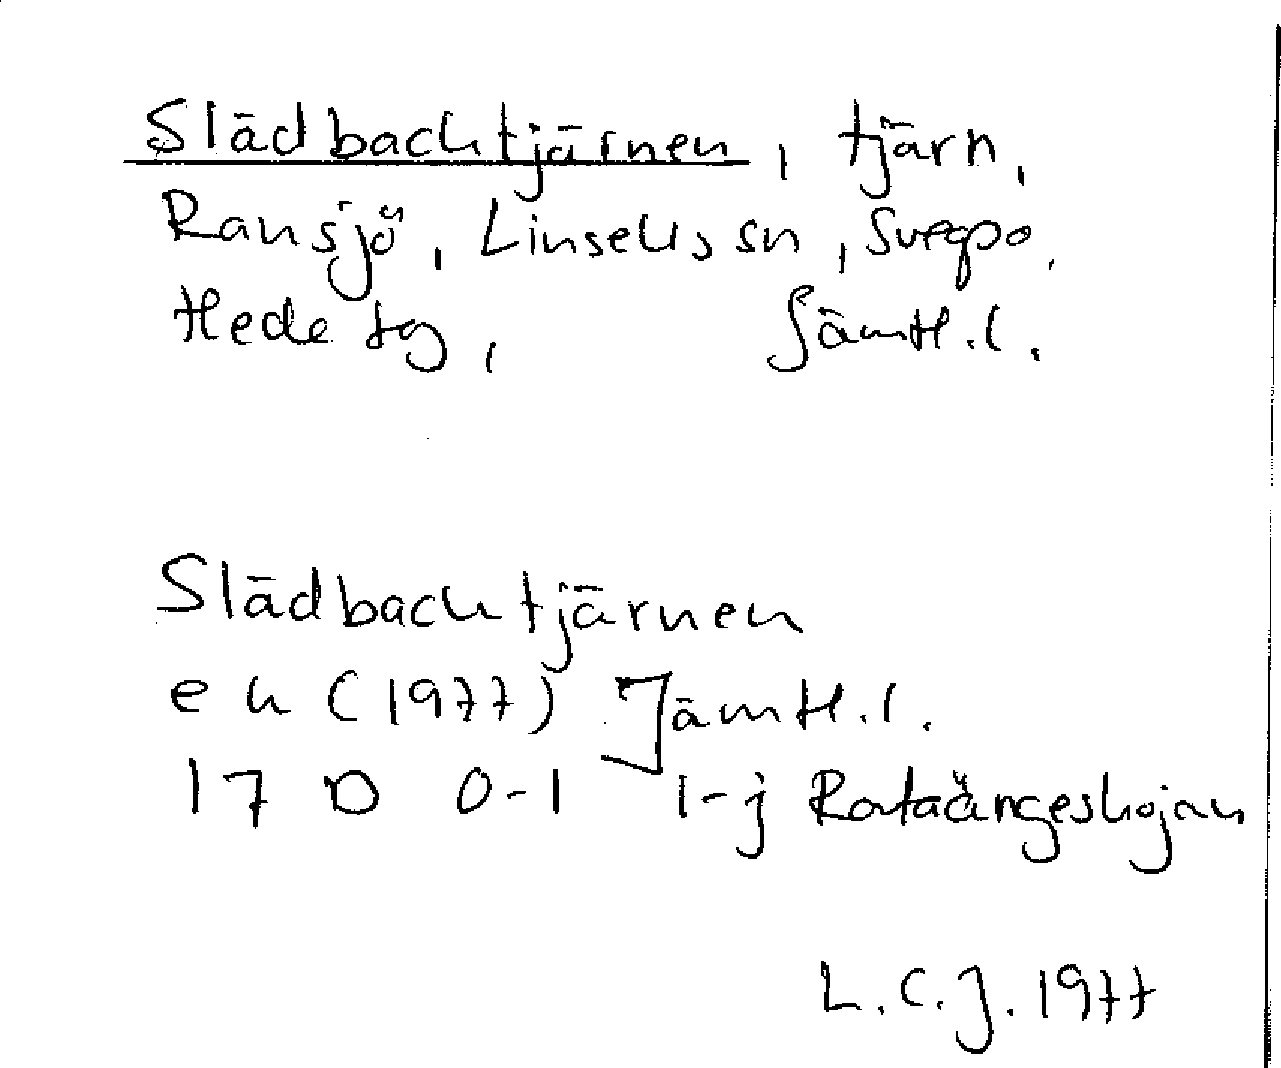 Slädbacktjärnen, tjärn,
Ransjö, Linsells sn, Svegpo,
Hede tg, Jämtl. l.
Slädbacktjärnen
ek (1977) Jämtl. l.
17 D 0-1 i-j Rataängeskojan
L.C.J. 1977